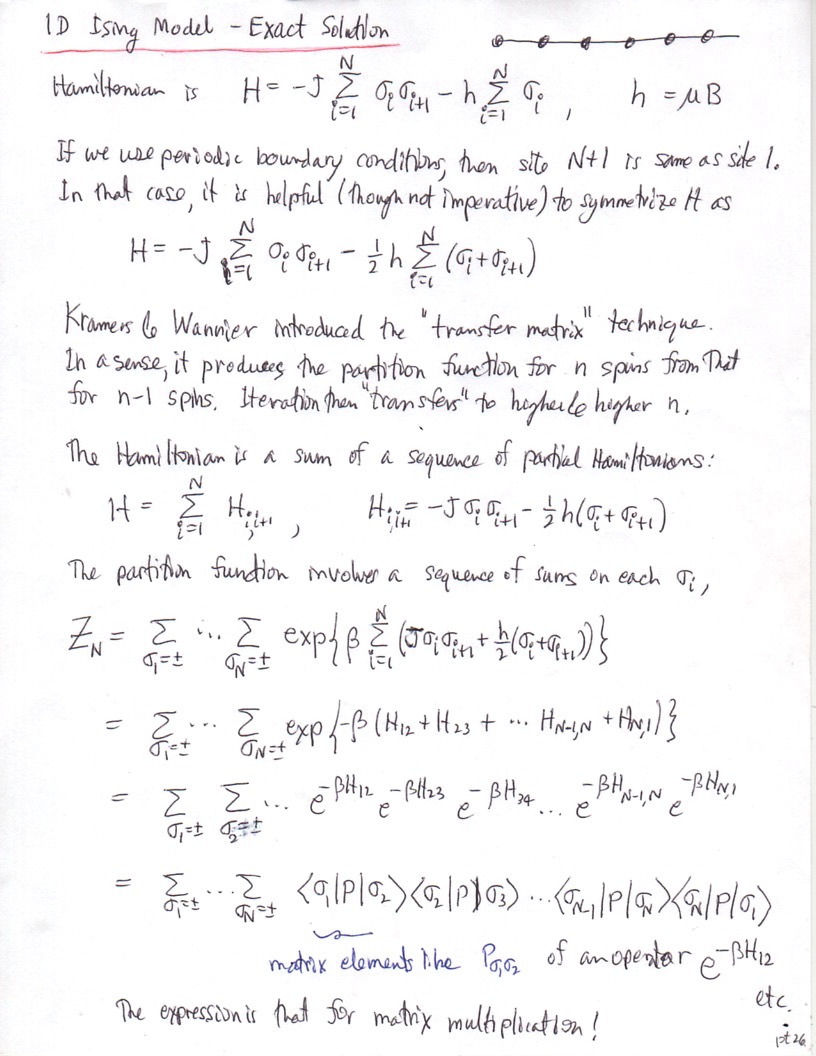 1D Ising Model - Exact Solution
Hamiltonian is H = -J Σ_{i=1}^{N} σ_i σ_{i+1} - h Σ_{i=1}^{N} σ_i , h = μB
If we use periodic boundary conditions, then site N+1 is same as site 1.
In that case, it is helpful (though not imperative) to symmetrize H as
H = -J Σ_{i=1}^{N} σ_i σ_{i+1} - ½ h Σ_{i=1}^{N} (σ_i + σ_{i+1})
Kramers & Wannier introduced the "transfer matrix" technique.
In a sense, it produces the partition function for n spins from that
for n-1 spins. Iteration then "transfers" to higher & higher n.
The Hamiltonian is a sum of a sequence of partial Hamiltonians:
H = Σ_{i=1}^{N} H_{i,i+1} , H_{i,i+1} = -J σ_i σ_{i+1} - ½ h(σ_i + σ_{i+1})
The partition function involves a sequence of sums on each σ_i,
Z_N = Σ_{σ_1=±} ... Σ_{σ_N=±} exp{β Σ_{i=1}^{N} (J σ_i σ_{i+1} + h/2 (σ_i + σ_{i+1}))}
= Σ_{σ_1=±} ... Σ_{σ_N=±} exp{-β (H_{12} + H_{23} + ... H_{N-1,N} + H_{N,1})}
= Σ_{σ_1=±} Σ_{σ_2=±} ... e^{-βH_{12}} e^{-βH_{23}} e^{-βH_{34}} ... e^{-βH_{N-1,N}} e^{-βH_{N,1}}
= Σ_{σ_1=±} ... Σ_{σ_N=±} ⟨σ_1|P|σ_2⟩⟨σ_2|P|σ_3⟩ ... ⟨σ_{N-1}|P|σ_N⟩⟨σ_N|P|σ_1⟩
matrix elements like P_{σ_1σ_2} of an opertor e^{-βH_{12}}
etc.
The expression is that for matrix multiplication!
pt26